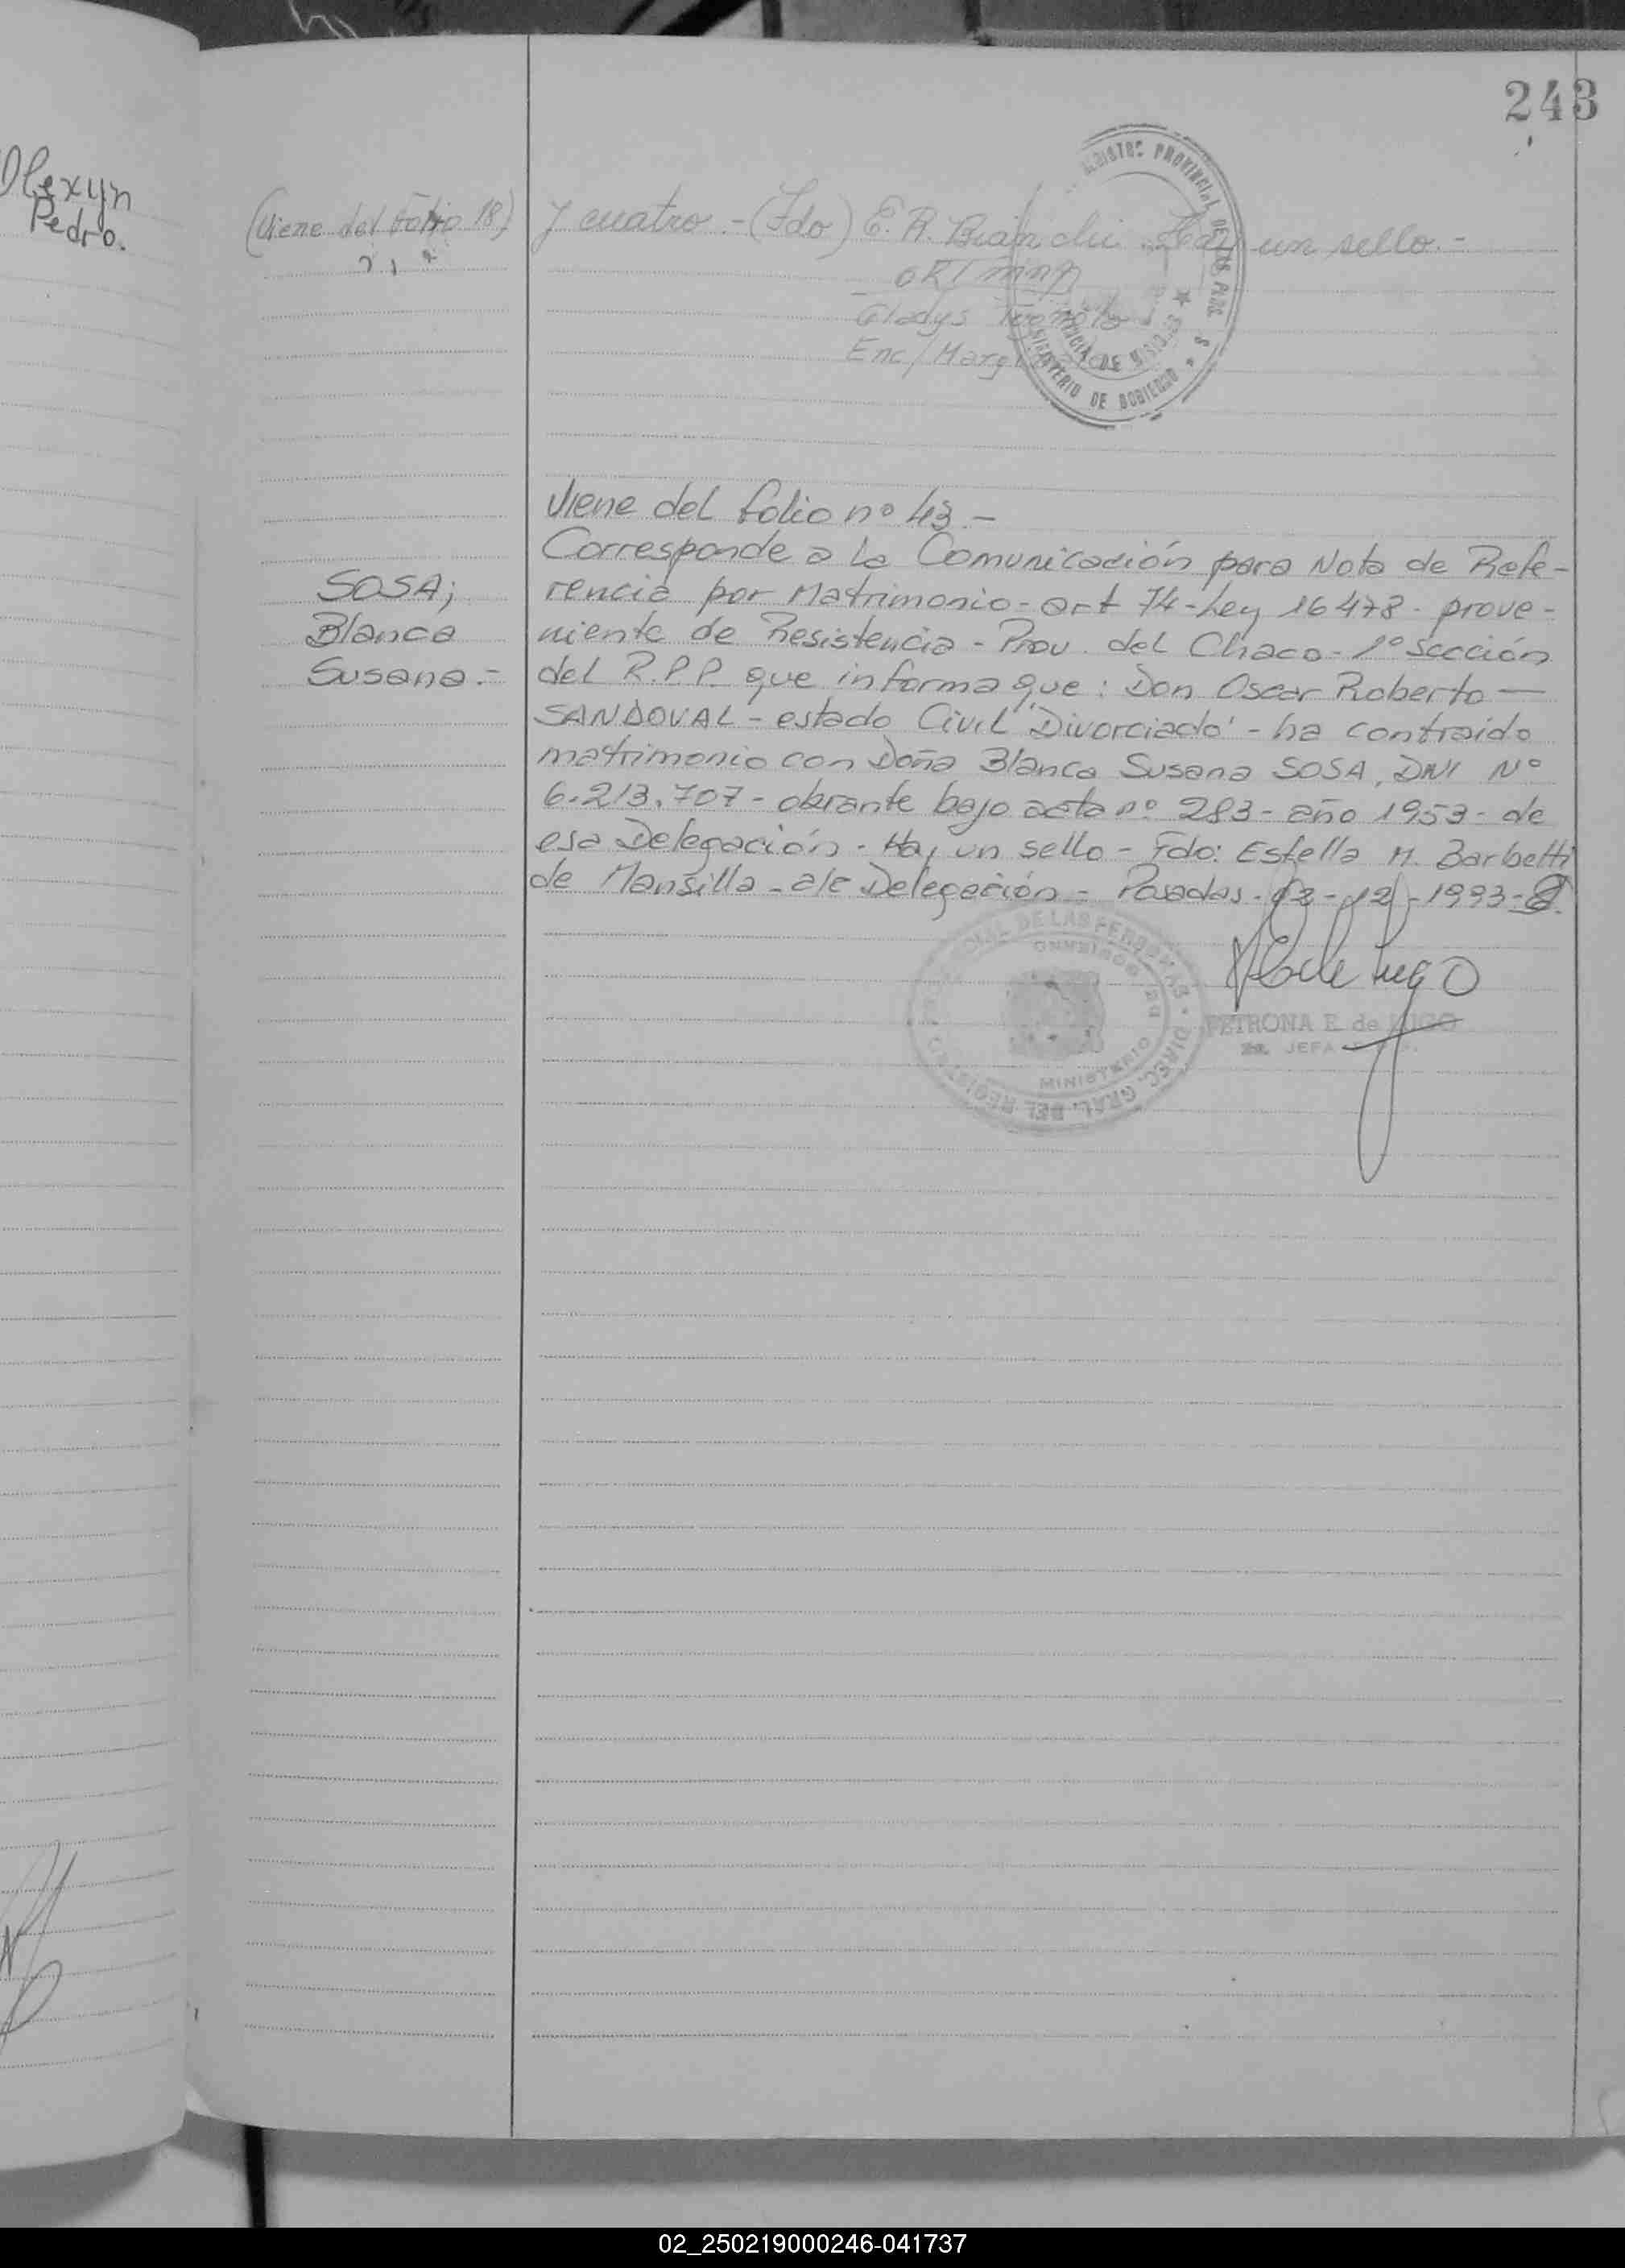 243
Olexyn
Pedro.
(Viene del Folio 18) y cuatro.-(Fdo) E. R. Bianchi. Hay un sello.-
Gladys
Enc/Marg
REGISTRO PROVINCIAL DE LAS PERS
MINISTERIO DE GOBIERNO
Viene del folio nº 43.-
Corresponde a la Comunicación para Nota de Refe-
SOSA;
Blanca
Susana.-
rencia por Matrimonio-art 74-Ley 16478- prove-
niente de Resistencia-Prov. del Chaco-1º Sección
del R.P.P. que informa que: Don Oscar Roberto—
SANDOVAL-estado Civil 'Divorciado'-ha contraído
matrimonio con Doña Blanca Susana SOSA, DNI Nº
6.213.707-obrante bajo acta nº 283-año 1953-de
esa Delegación. Hay un sello-Fdo: Estella M. Barbetti
de Mansilla-a/c Delegación-Posadas. 02-12-1993-
PETRONA E. de LUGO
2a. JEFA
DIREC. GRAL. DEL REGISTRO PROVINCIAL DE LAS PERSONAS
MINISTERIO DE GOBIERNO
02_250219000246-041737